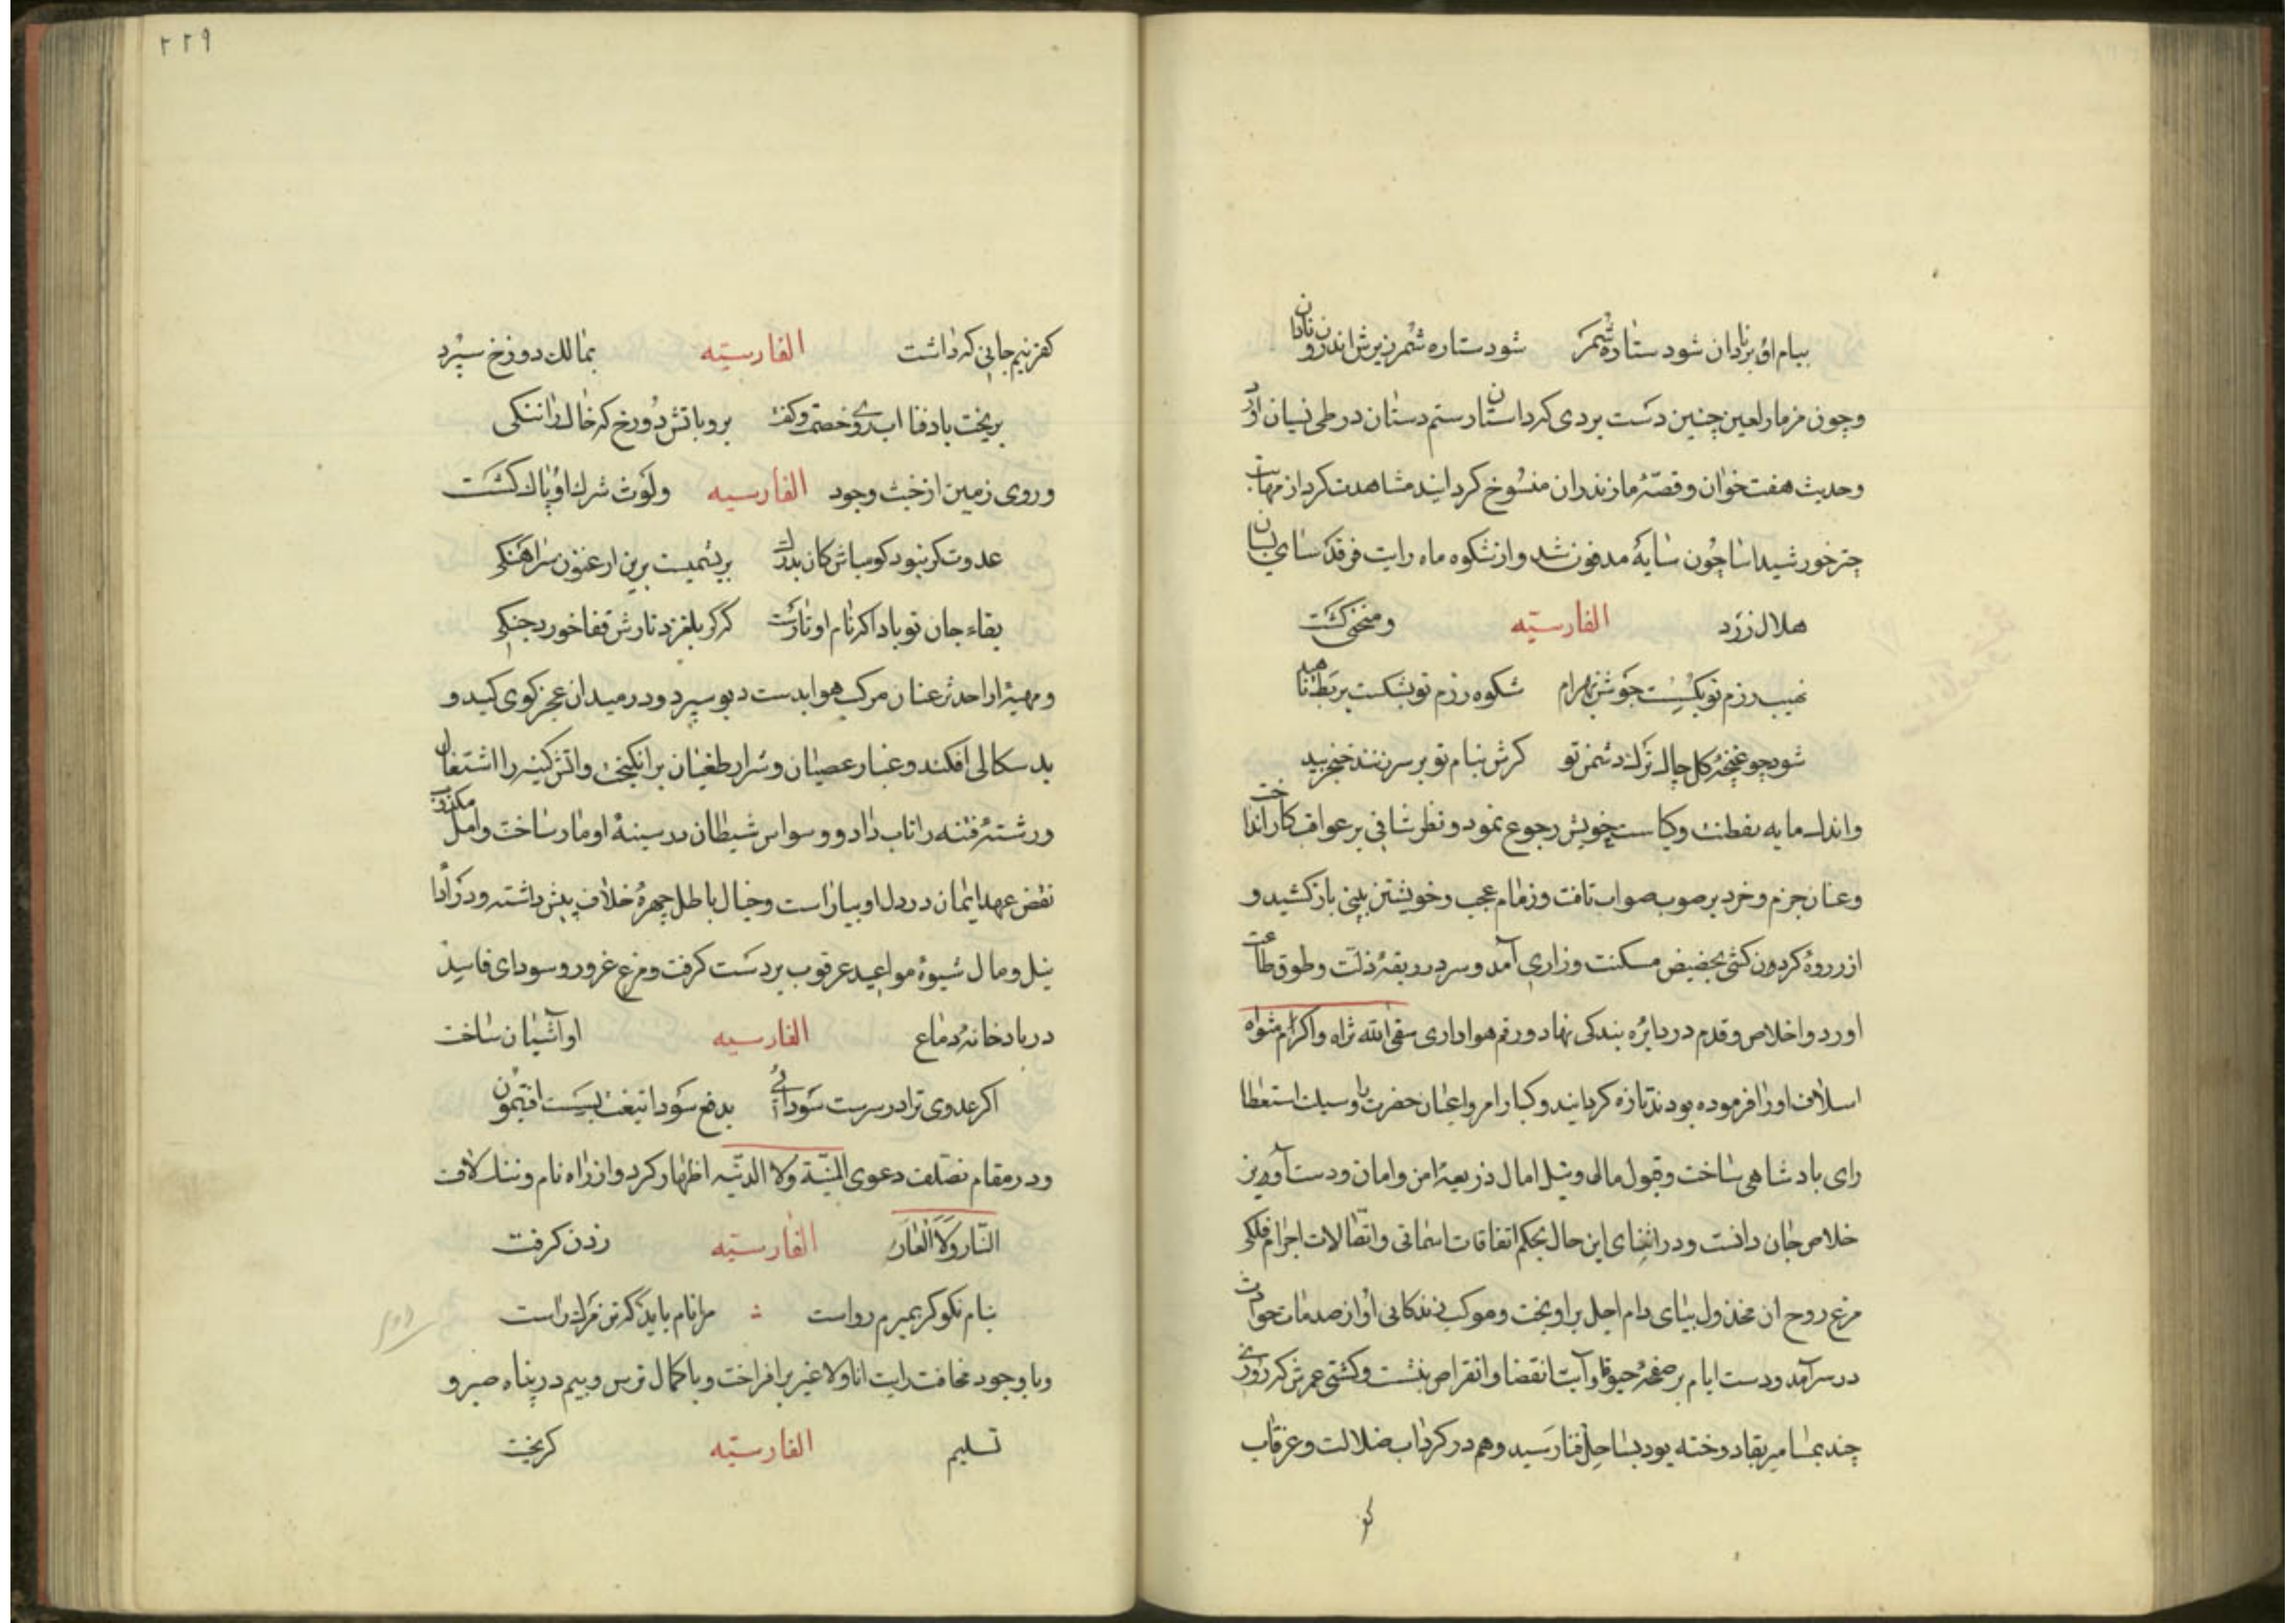 ببام او بر نادان شود ستاره شمر شود ستاره شمر زیرش اندرون نادان
و چون مزمار لعین چنین دست بردی کرد استان رستم دستان در طی نسیان آورد
و حدیث هفت خوان و قصهٔ مازندران منسوخ کردانید مشاهدت کرد از مهابت
چتر خورشید اسا چون سایه مدفون شد و از شکوه ماه رایت فرقد سای بسان
هلال زرد الفارسیّه و منخنی کشت
نهیب رزم تو بکسست جوشن بهرام شکوه رزم تو بشکست بربط ناهید
شود چو غنچهٔ کل چاک ترک دشمن تو کرش بنام تو بر سر نهند خنجر بید
و اندک مایه بفطنت و کیاست خویش رجوع نمود و نظر شافی بر عواقب کار انداخت
و عنان حزم و خرد بر صوب صواب تافت و زمام عجب و خویشتن بینی باز کشید و
از ذروهٔ کردون کشی بحضیض مسکنت و زاری آمد و سر در ربقهٔ ذلت و طوق طاعت
اورد و اخلاص و قدم در دایرهٔ بندکی نهاد و رقم هواداری سقی الله ثراه و اکرام مثواه
اسلاف او را فرموده بودند تازه کردانید و کبار امرا و اعیان حضرت را وسیلت استعطاا
رای بادشاهی ساخت و قبول مال و نیل امال ذریعهٔ امن و امان و دست آویز
خلاص جان دانست و در اثنای این حال بحکم اتفاقات اسمانی و اتّصالات اجرام فلکی
مرغ روح ان مخذول بپای دام اجل براویخت و موکب زندکانی او از صدمات حوادث
در سر آمد و دست ایام بر صفحهٔ حیوة او آیت انقضا و انقراض بنشت و کشتی عمرش که روزی
چند بمسامیر بقا دوخته بود بساحل فنا رسید و هم در کرداب ضلالت و غرقاب
کفر
۲۲۹
کفر نیم جانی که داشت الفارسیّه بمالک دوزخ سپرد
بریخت باد فنا اب روی خصمت و کفت برو باتش دوزخ که خاک را ننکی
و روی زمین از خبث وجود الفارسیه و لوث شرک او پاک کشت
عدوت کر نبود کو مباش کان بدرک بریشمیست برین ارغنون سراهنکی
بقاء جان تو باد اکر نام او نارست کر کر بلغزد تارش قفا خورد چنکی
و مهینهٔ او احدثر عنان مرکب هوا بدست دیو سپرد و در میدان عجز کوی کید و
بد سکالی افکند و غبار عصیان و شرار طغیان برانکیخت و اتش کینه را اشتعال
و رشتهٔ فتنه را تاب داد و وسواس شیطان در سینهٔ او مار ساخت و امل مکذوب
نقض عهد ایمان در دل او بیاراست و خیال باطل چهرهٔ خلاف پیش داشته و در ادا
نیل و مال شیوهٔ مواعید عرقوب بر دست کرفت و مرغ غرور و سودای فاسد
در بادخانهٔ دماغ الفارسیه او آشیان ساخت
اکر عدوی ترا در سرست سودائی بدفع سودا تیغت بسست افتیمون
و در مقام تصلف دعوی المنیّة ولا الدنیّه اظهار کرد و از راه نام و ننک لاف
النّار ولا العار الفارسیّه زدن کرفت
بنام نکو کر بمیرم رواست مرا نام باید که تن مرک راست
و با وجود مخافت رایت انا ولا غیر برافراخت و با کمال ترس و بیم در پناه صبر و
تسلیم الفارسیّه کریخت